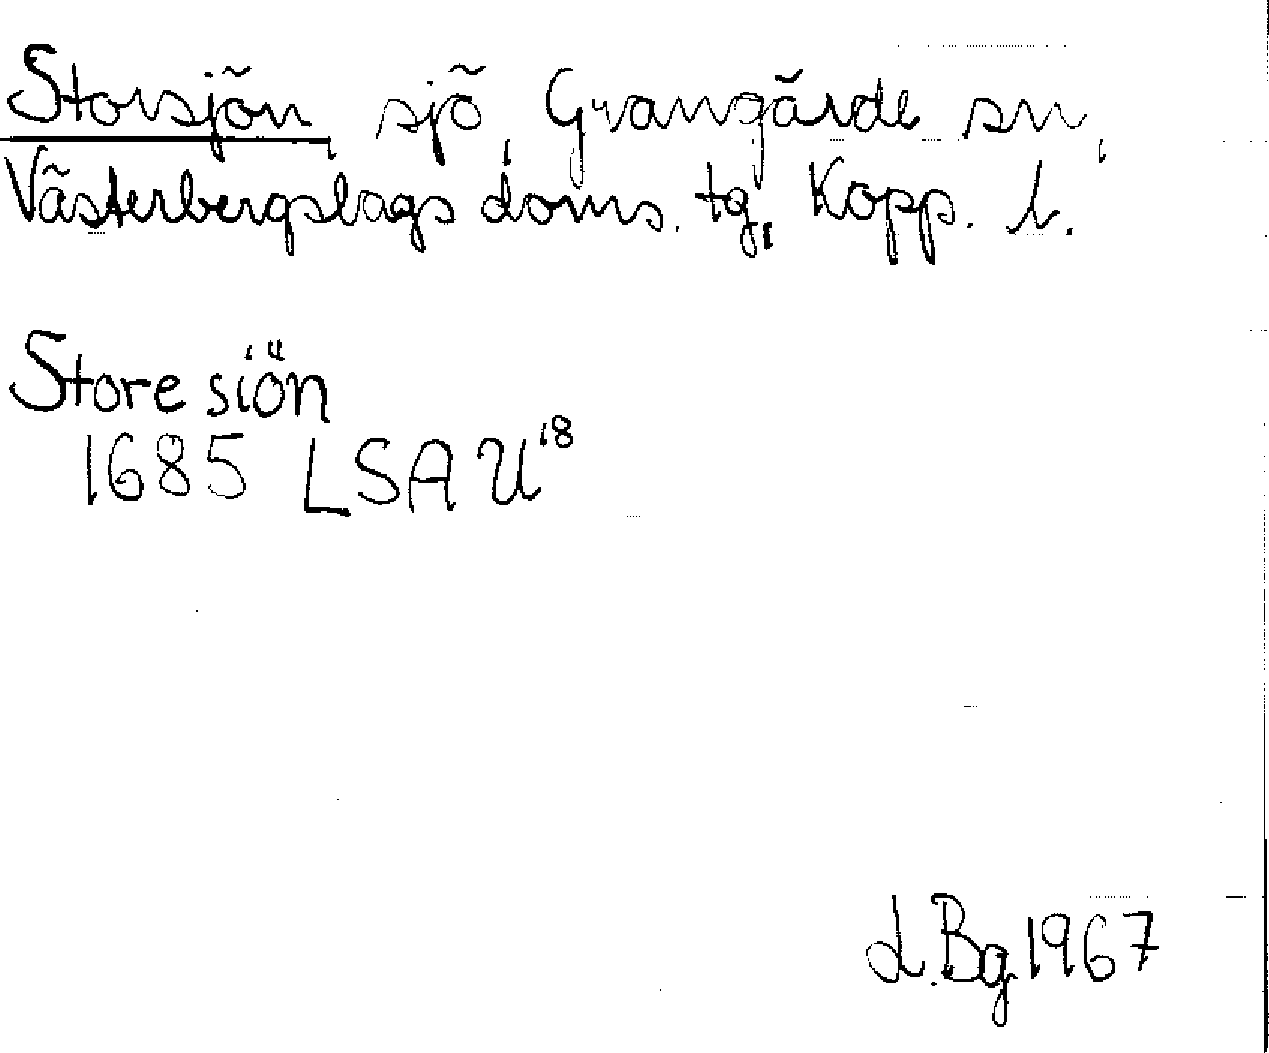 Storsjön, sjö, Grangärde sn,
Västerbergslags doms. tg, Kopp. l.
Store siön
1685 LSA U18
L.Bg 1967